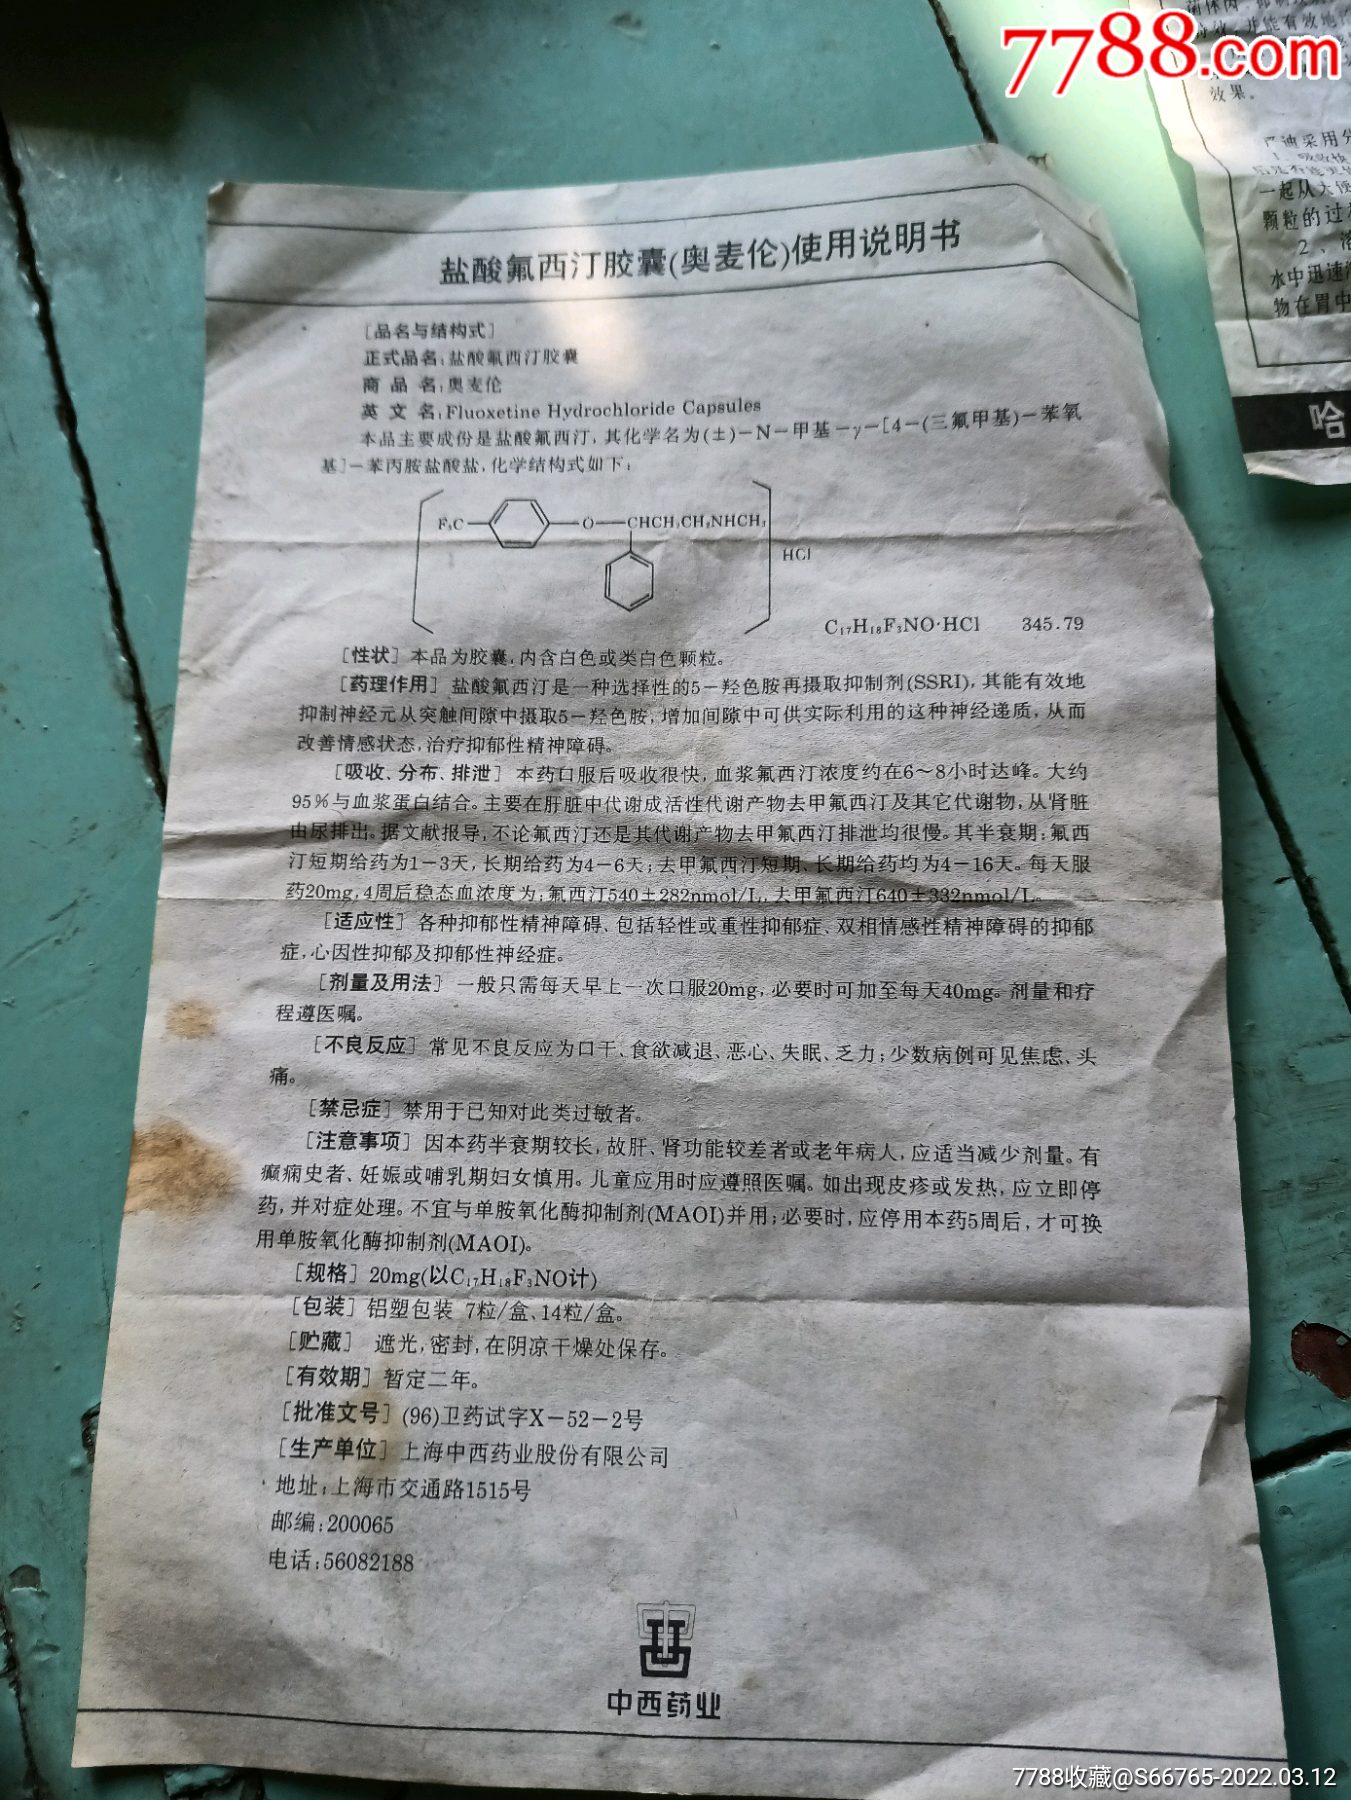 7788.com
效果。
一起从大便
颗粒的过
水中迅速
物在胃中
哈
盐酸氟西汀胶囊(奥麦伦)使用说明书
[品名与结构式]
正式品名:盐酸氟西汀胶囊
商 品 名:奥麦伦
英 文 名:Fluoxetine Hydrochloride Capsules
本品主要成份是盐酸氟西汀,其化学名为(±)-N-甲基-γ-[4-(三氟甲基)-苯氧
基]-苯丙胺盐酸盐,化学结构式如下:
F₃C O CHCH₂CH₂NHCH₃
HCl
C₁₇H₁₈F₃NO·HCl 345.79
[性状] 本品为胶囊,内含白色或类白色颗粒。
[药理作用] 盐酸氟西汀是一种选择性的5-羟色胺再摄取抑制剂(SSRI),其能有效地
抑制神经元从突触间隙中摄取5-羟色胺,增加间隙中可供实际利用的这种神经递质,从而
改善情感状态,治疗抑郁性精神障碍。
[吸收、分布、排泄] 本药口服后吸收很快,血浆氟西汀浓度约在6~8小时达峰。大约
95%与血浆蛋白结合。主要在肝脏中代谢成活性代谢产物去甲氟西汀及其它代谢物,从肾脏
由尿排出。据文献报导,不论氟西汀还是其代谢产物去甲氟西汀排泄均很慢。其半衰期:氟西
汀短期给药为1-3天,长期给药为4-6天;去甲氟西汀短期、长期给药均为4-16天。每天服
药20mg,4周后稳态血浓度为:氟西汀540±282nmol/L,去甲氟西汀640±332nmol/L。
[适应性] 各种抑郁性精神障碍、包括轻性或重性抑郁症、双相情感性精神障碍的抑郁
症,心因性抑郁及抑郁性神经症。
[剂量及用法] 一般只需每天早上一次口服20mg,必要时可加至每天40mg。剂量和疗
程遵医嘱。
[不良反应] 常见不良反应为口干、食欲减退、恶心、失眠、乏力;少数病例可见焦虑、头
痛。
[禁忌症] 禁用于已知对此类过敏者。
[注意事项] 因本药半衰期较长,故肝、肾功能较差者或老年病人,应适当减少剂量。有
癫痫史者、妊娠或哺乳期妇女慎用。儿童应用时应遵照医嘱。如出现皮疹或发热,应立即停
药,并对症处理。不宜与单胺氧化酶抑制剂(MAOI)并用;必要时,应停用本药5周后,才可换
用单胺氧化酶抑制剂(MAOI)。
[规格] 20mg(以C₁₇H₁₈F₃NO计)
[包装] 铝塑包装 7粒/盒、14粒/盒。
[贮藏] 遮光,密封,在阴凉干燥处保存。
[有效期] 暂定二年。
[批准文号] (96)卫药试字X-52-2号
[生产单位] 上海中西药业股份有限公司
地址:上海市交通路1515号
邮编:200065
电话:56082188
中西药业
7788收藏@S66765-2022.03.12